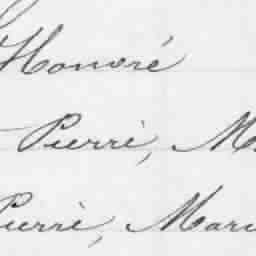 Honoré
Pierrè, M
Pierrè, Mari